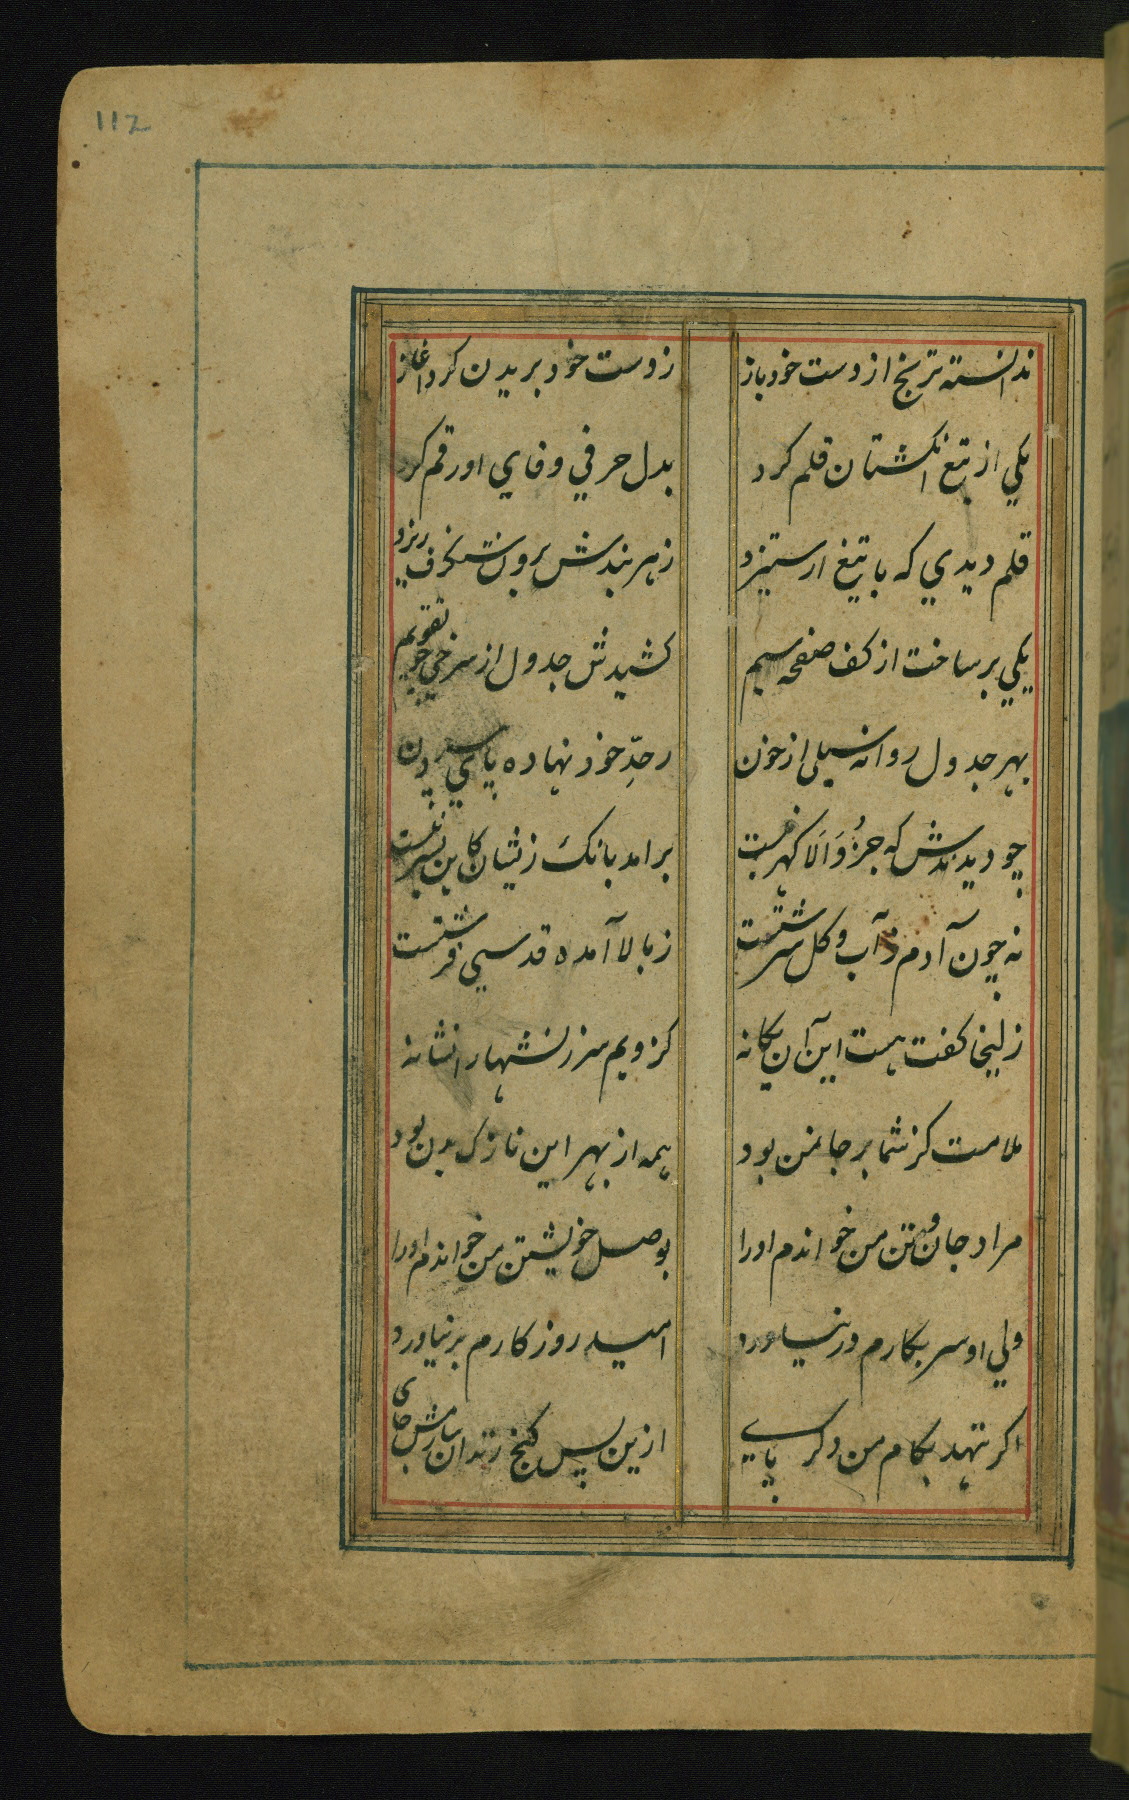 112
ندانسته ترنج از دست خود باز ز دست خود بریدن کرد اغاز
یکي از تیغ انکشتان قلم کرد بدل حرفي وفاي او رقم کرد
قلم دیدي که با تیغ ار ستیزد ز هر بندش برون شنکرف ریزد
یکي برساخت از کف صفحه سیم کشیدش جدول از سرخي چو تقویم
بهر جدول روانه سیلی از خون ز حدِّ خود نهاده پاي بیرون
چو دیدندش که جز وَالَا کهر نیست برامد بانک زیشان کاین بشر نیست
نه چون آدم ز آب و کل سرشتست ز بالا آمده قدسي فرشتست
زلیخا کفت هست این آن یکانه کزویم سرزنشهارا نشانه
ملامت کز شما بر جان من بود همه از بهر این نازک بدن بود
مراد جان و تن من خواندم اورا بوصل خویشتن من خواندم اورا
ولي او سر بکارم در نیاورد امید روزکارم بر نیاورد
اکر ننهد بکام من دکر پاے ازین پس کنج زندان سازمش جاي